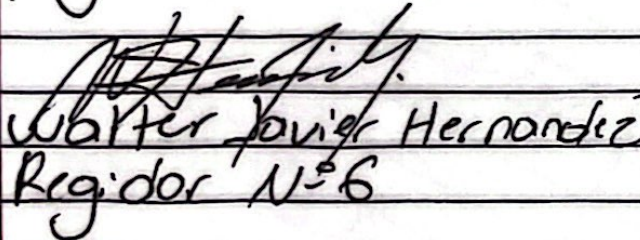 Walter Javier Hernandez
Regidor Nº 6